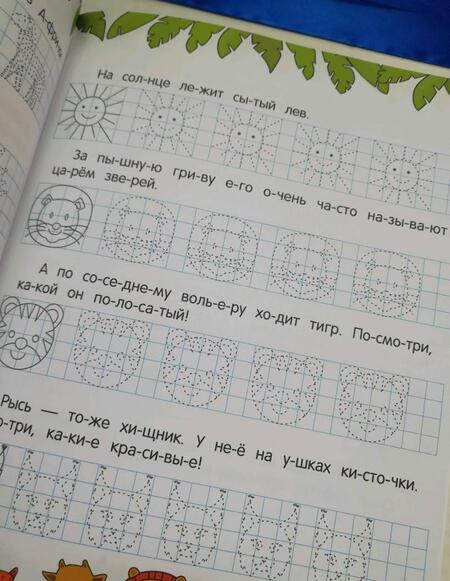 А-фри
На сол-нце ле-жит сы-тый лев.
За пы-шну-ю гри-ву е-го о-чень ча-сто на-зы-ва-ют
ца-рём зве-рей.
А по со-се-дне-му воль-е-ру хо-дит тигр. По-смо-три,
ка-кой он по-ло-са-тый!
Рысь — то-же хи-щник. У не-ё на у-шках ки-сто-чки.
о-три, ка-ки-е кра-си-вы-е!